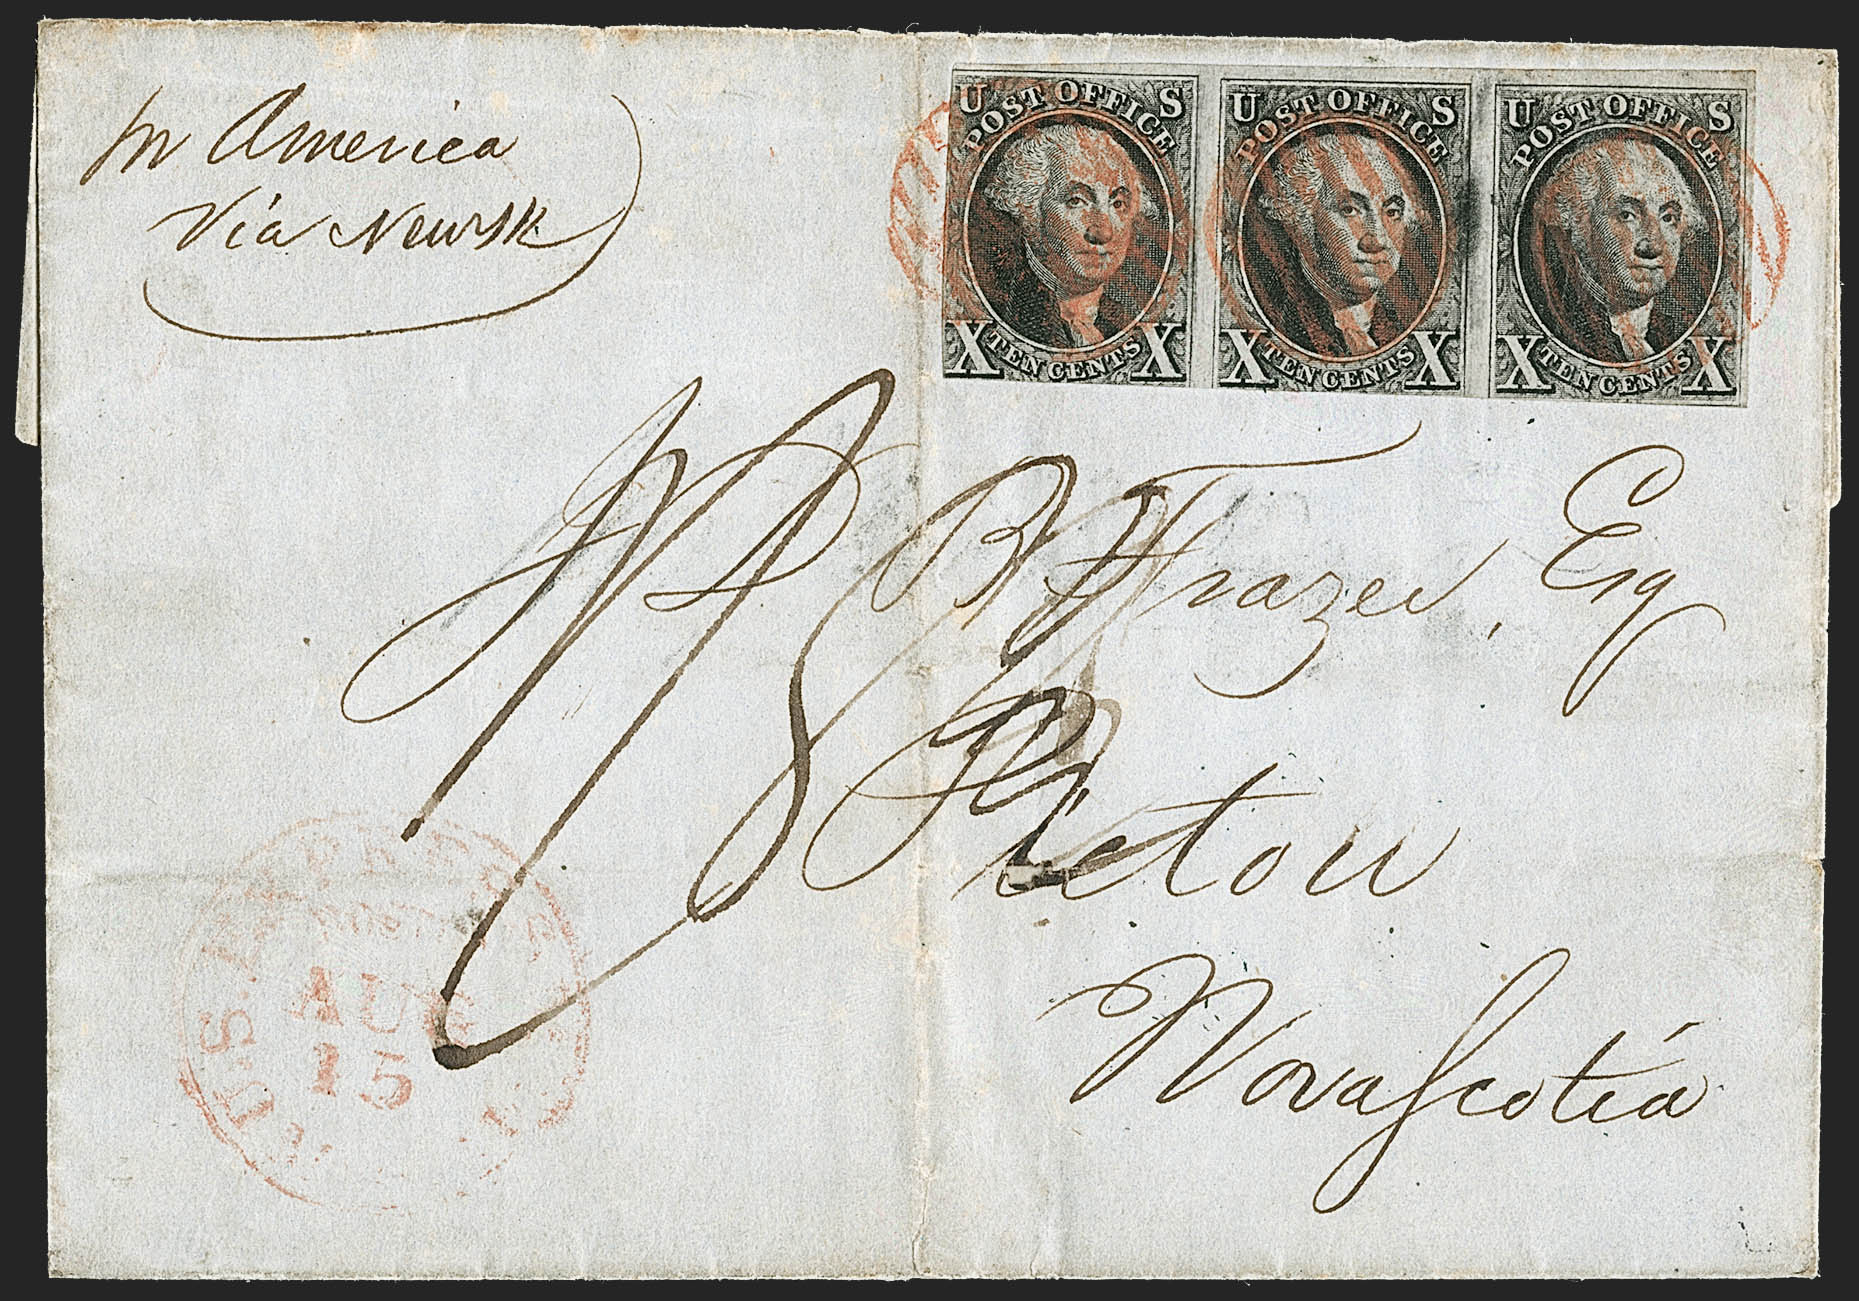 pr America
Via NewYk
U POST OFFICE S
X TEN CENTS X
U POST OFFICE S
X TEN CENTS X
U POST OFFICE S
X TEN CENTS X
B Frazer, Esq
Pictou
Nova Scotia
U.S. EXPRESS
AUG
15